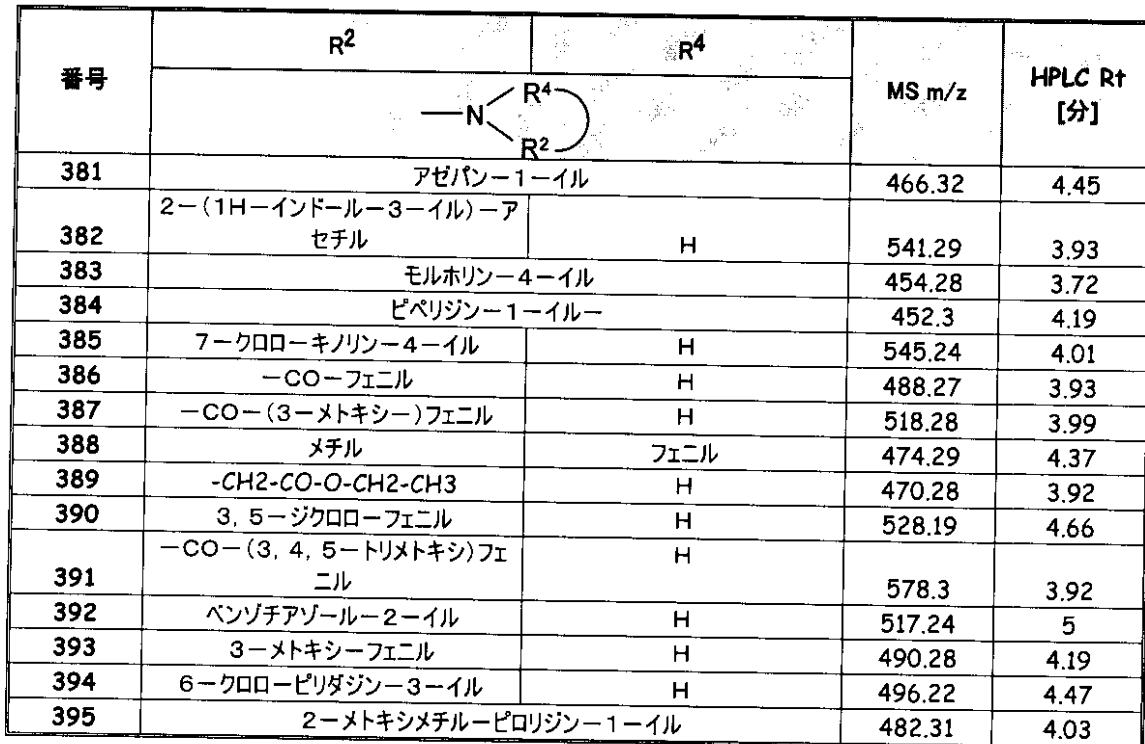 番号 R² R⁴ MS m/z HPLC Rt [分]
R⁴
—N
R²
381 アゼパン−1−イル 466.32 4.45
2−(1H−インドール−3−イル)−ア
382 セチル H 541.29 3.93
383 モルホリン−4−イル 454.28 3.72
384 ピペリジン−1−イル− 452.3 4.19
385 7−クロロ−キノリン−4−イル H 545.24 4.01
386 −CO−フェニル H 488.27 3.93
387 −CO−(3−メトキシ−)フェニル H 518.28 3.99
388 メチル フェニル 474.29 4.37
389 -CH2-CO-O-CH2-CH3 H 470.28 3.92
390 3, 5−ジクロロ−フェニル H 528.19 4.66
−CO−(3, 4, 5−トリメトキシ)フェ H
391 ニル 578.3 3.92
392 ベンゾチアゾール−2−イル H 517.24 5
393 3−メトキシ−フェニル H 490.28 4.19
394 6−クロロ−ピリダジン−3−イル H 496.22 4.47
395 2−メトキシメチル−ピロリジン−1−イル 482.31 4.03